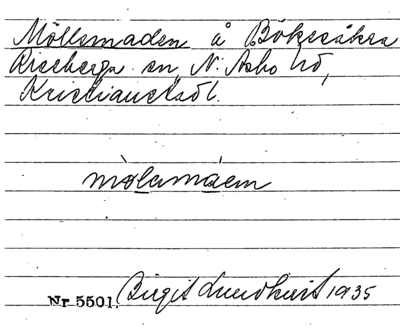 Möllemaden å Böketåkra
Riseberga sn, N. Åsbo hd,
Kristianst. l.
mòlamáen
Nr 5501. Birgit Lundkvist 1935